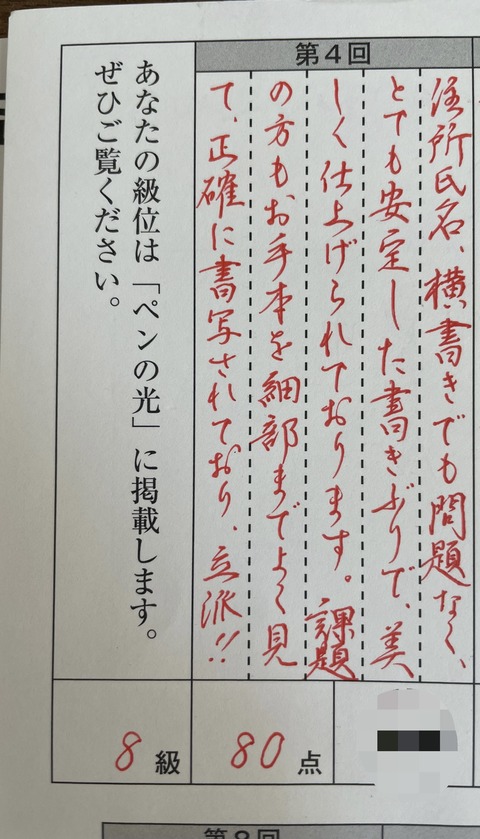 第4回
住所氏名、横書きでも問題なく、
とても安定した書きぶりで、美
しく仕上げられております。課題
の方もお手本を細部までよく見
て、正確に書写されており、立派!!
あなたの級位は「ペンの光」に掲載します。
ぜひご覧ください。
80点
8級
第8回